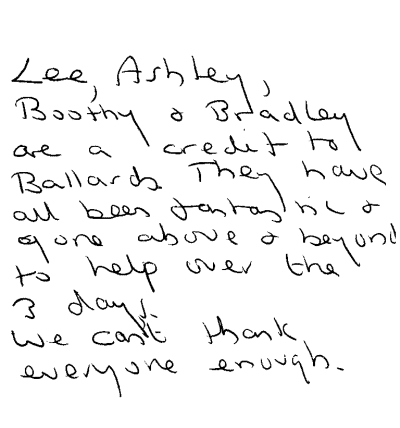 Lee, Ashley,
Boothy & Bradley
are a credit to
Ballards. They have
all been fantastic &
gone above & beyond
to help over the
3 days.
We can't thank
everyone enough.